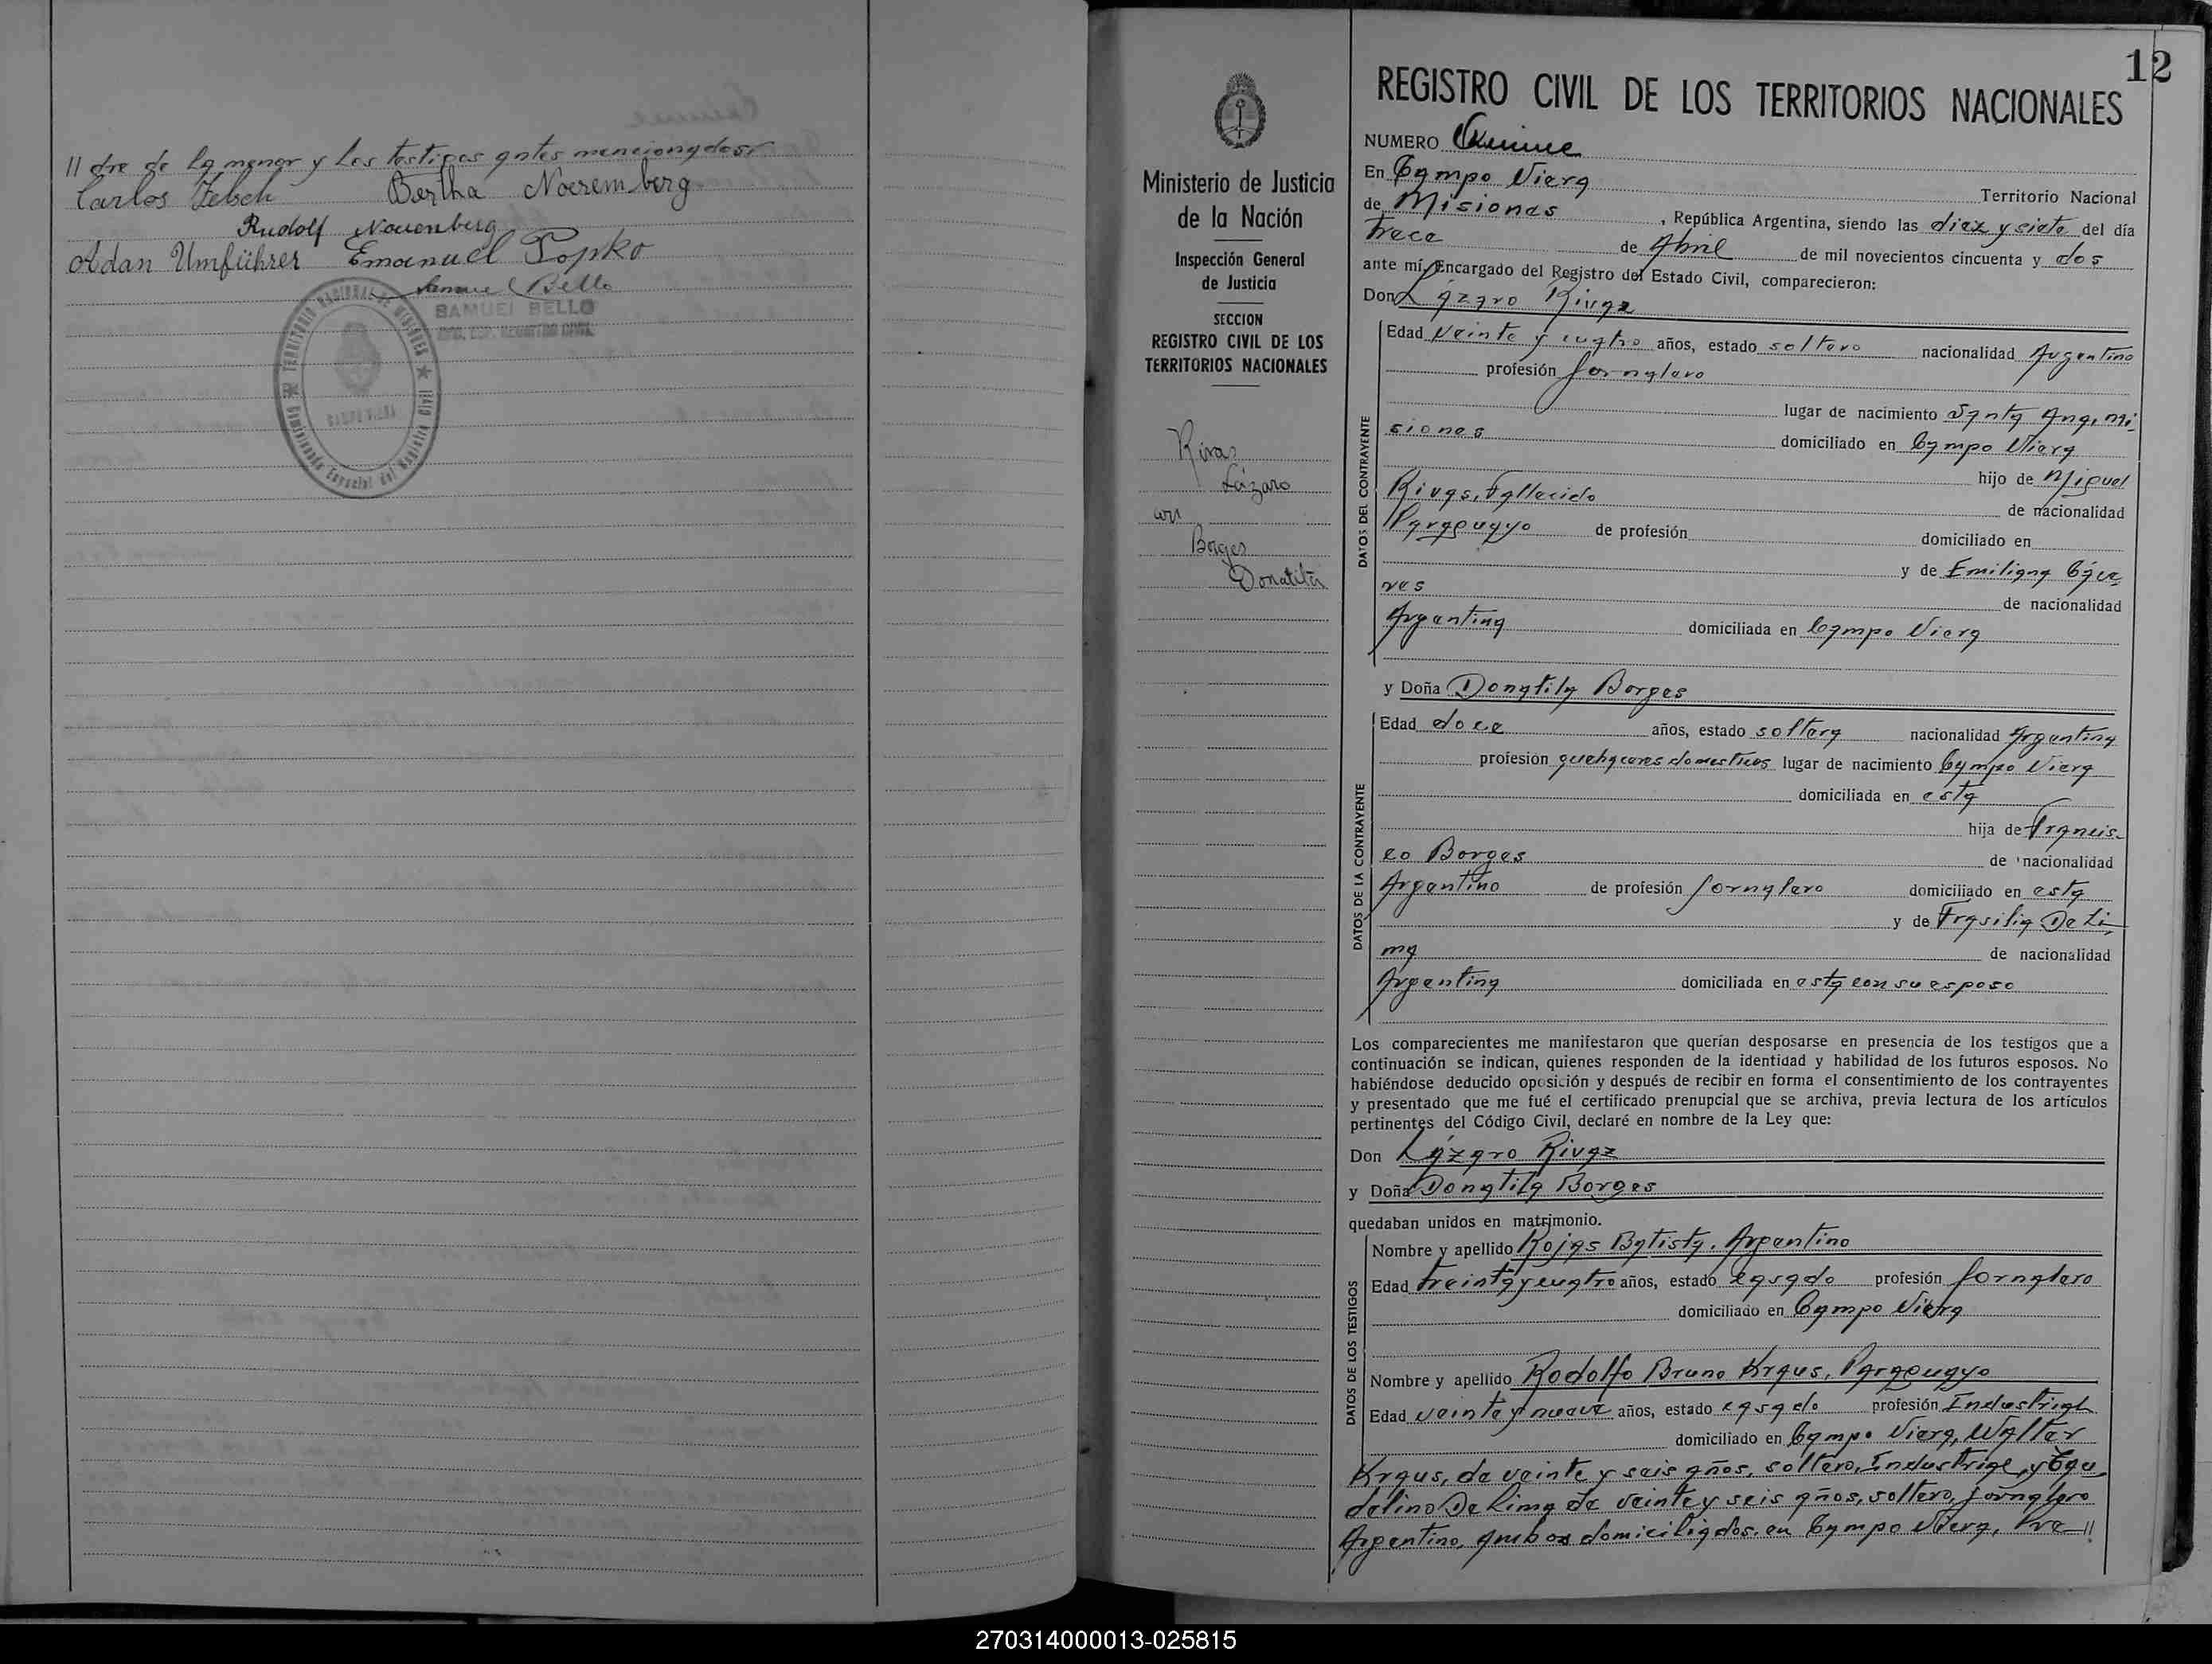 // dre de la menor y los testigos antes mencionados
Carlos Zelsch Bertha Noeremberg
Rudolf Nouenberg
Adan Umführer Emanuel Popko
Samuel Bello
SAMUEL BELLO
ENC. ESP. REGISTRO CIVIL
TERRITORIO NACIONAL DE MISIONES
Comisionado Especial del Registro Civil
12
Ministerio de Justicia
de la Nación
Inspección General
de Justicia
SECCION
REGISTRO CIVIL DE LOS
TERRITORIOS NACIONALES
Rivas
Lázaro
con
Borges
Donatila
REGISTRO CIVIL DE LOS TERRITORIOS NACIONALES
NUMERO Quince
En Campo Viera Territorio Nacional
de Misiones, República Argentina, siendo las diez y siete del día
trece de Abril de mil novecientos cincuenta y dos
ante mí, Encargado del Registro del Estado Civil, comparecieron:
Don Lázaro Rivaz
DATOS DEL CONTRAYENTE
Edad veinte y cuatro años, estado soltero nacionalidad Argentino
profesión Jornalero
lugar de nacimiento Santa Ana, Mi-
siones domiciliado en Campo Viera
hijo de Miguel
Rivas, Fallecido de nacionalidad
Paraguayo de profesión domiciliado en
y de Emiliana Cáce-
res de nacionalidad
Argentina domiciliada en Campo Viera
y Doña Donatila Borges
DATOS DE LA CONTRAYENTE
Edad doce años, estado soltera nacionalidad Argentina
profesión quehaceres domesticos lugar de nacimiento Campo Viera
domiciliada en esta
hija de Francis-
co Borges de nacionalidad
Argentino de profesión Jornalero domiciliado en esta
y de Frasilia De Li-
ma de nacionalidad
Argentina domiciliada en esta con su esposo
Los comparecientes me manifestaron que querían desposarse en presencia de los testigos que a
continuación se indican, quienes responden de la identidad y habilidad de los futuros esposos. No
habiéndose deducido oposición y después de recibir en forma el consentimiento de los contrayentes
y presentado que me fué el certificado prenupcial que se archiva, previa lectura de los artículos
pertinentes del Código Civil, declaré en nombre de la Ley que:
Don Lázaro Rivaz
y Doña Donatila Borges
quedaban unidos en matrimonio.
DATOS DE LOS TESTIGOS
Nombre y apellido Rojas Batista, Argentino
Edad treinta y cuatro años, estado casado profesión Jornalero
domiciliado en Campo Viera
Nombre y apellido Rodolfo Bruno Kraus, Paraguayo
Edad veinte y nueve años, estado casado profesión Industrial
domiciliado en Campo Viera, Walter
Kraus, de veinte y seis años, soltero, Industrial, y Cau
delino De Lima de veinte y seis años, soltero, jornalero
Argentino, ambos domiciliados en Campo Viera, Pre //
270314000013-025815